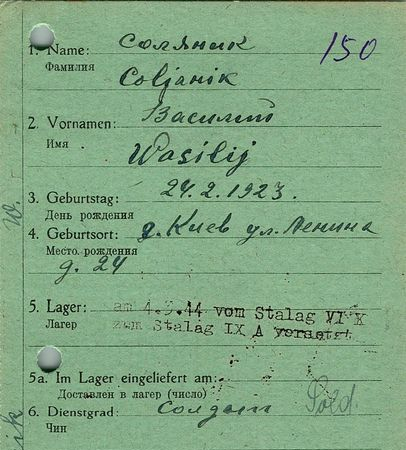 соляник
1. Name: 150
Фамилия Coljanik
Василий
2. Vornamen:
Имя Wasilij
3. Geburtstag: 24.2.1923.
День рождения
4. Geburtsort: г. Киев ул. Ленина
Место. рождения
д. 24
5. Lager: am 4.3.44 vom Stalag VI K
Лагер zum Stalag IX A versetzt
5a. Im Lager eingeliefert am:
Доставлен в лагер (число)
6. Dienstgrad: солдат Sold.
Чин
W.
ik